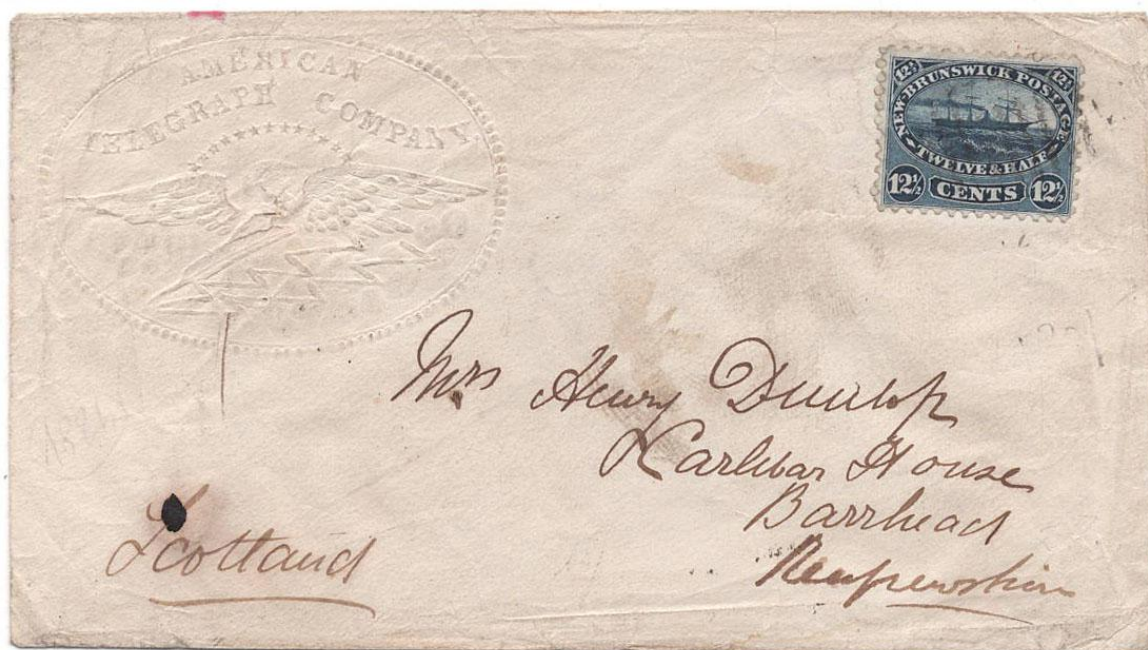 AMERICAN
TELEGRAPH COMPANY
12½ 12½
NEW-BRUNSWICK POSTAGE
TWELVE & HALF
12½ CENTS 12½
Mrs Henry Dunlop
Karlibar House
Barrhead
Renfrewshire
Scotland